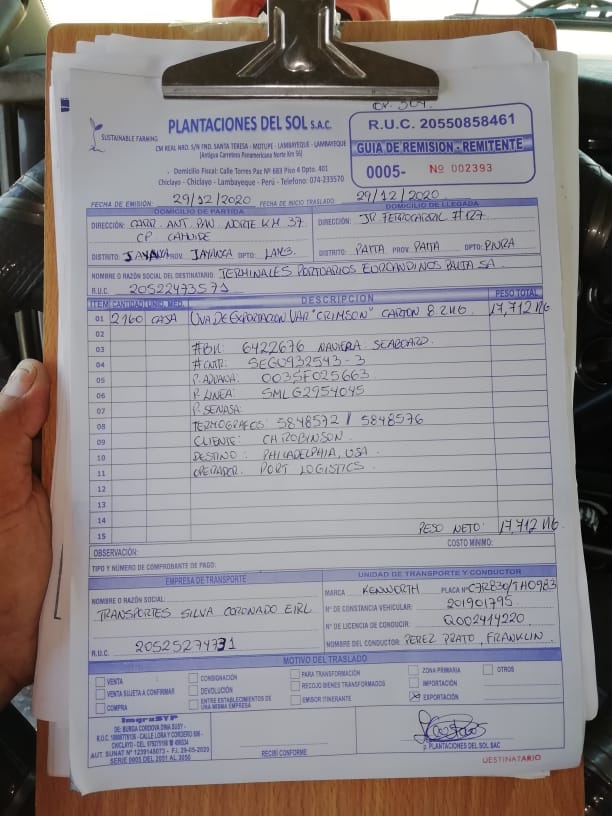 OP. 504.
SUSTAINABLE FARMING
PLANTACIONES DEL SOL S.A.C.
CM REAL NRO. S/N FND. SANTA TERESA - MOTUPE - LAMBAYEQUE - LAMBAYEQUE
(Antigua Carretera Panamericana Norte Km 56)
Domicilio Fiscal: Calle Torres Paz Nº 683 Piso 4 Dpto. 401
Chiclayo - Chiclayo - Lambayeque - Perú - Telefono: 074-233570
R.U.C. 20550858461
GUIA DE REMISION - REMITENTE
0005- Nº 002393
FECHA DE EMISIÓN: 29/12/2020 FECHA DE INICIO TRASLADO: 29/12/2020
DOMICILIO DE PARTIDA
DIRECCIÓN: CARR. ANT. PAN. NORTE KM 37
DISTRITO: JAYANCA PROV. JAYANCA DPTO:
DOMICILIO DE LLEGADA
DIRECCIÓN: JR FERROCARRIL #127
DISTRITO: PAITA PROV. PAITA DPTO: PIURA
NOMBRE O RAZÓN SOCIAL DEL DESTINATARIO: TERMINALES PORTUARIOS EUROANDINOS PAITA SA
R.U.C. 20522473571
ITEM CANTIDAD UNID. MED. DESCRIPCION PESO TOTAL
01 2160 CAJA UVA DE EXPORTACION VAR "CRIMSON" CARTON 8.2 KG. 17,712 KG
02
03 #BK: 6422676 NAVIERA SEABOARD.
04 #CNTR: SEGU932543-3
05 P. ADUANA: 0035F025663
06 P. LINEA: SMLG2954045
07 P. SENASA:
08 TERMOGRAFOS: 5848572 / 5848576
09 CLIENTE: CH ROBINSON
10 DESTINO: PHILADELPHIA, USA
11 OPERADOR: PORT LOGISTICS
12
13
14
15 PESO NETO: 17,712 KG
OBSERVACIÓN: COSTO MÍNIMO:
TIPO Y NÚMERO DE COMPROBANTE DE PAGO:
EMPRESA DE TRANSPORTE
NOMBRE O RAZÓN SOCIAL:
TRANSPORTES SILVA CORONADO EIRL
R.U.C. 20525274731
UNIDAD DE TRANSPORTE Y CONDUCTOR
MARCA KENWORTH PLACA Nº C7R830/TH0983
Nº DE CONSTANCIA VEHICULAR: 201901795
Nº DE LICENCIA DE CONDUCIR: Q002414220
NOMBRE DEL CONDUCTOR: PEREZ PRATO, FRANKLIN
MOTIVO DEL TRASLADO
VENTA
VENTA SUJETA A CONFIRMAR
COMPRA
CONSIGNACIÓN
DEVOLUCIÓN
ENTRE ESTABLECIMIENTOS DE UNA MISMA EMPRESA
PARA TRANSFORMACIÓN
RECOJO BIENES TRANSFORMADOS
EMISOR ITINERANTE
ZONA PRIMARIA
IMPORTACIÓN
EXPORTACIÓN
OTROS
ImgraSYP
DE: BURGA CORDOVA DINA SUSY -
CHICLAYO - CEL.
SERIE 0005 DEL 2001 AL 3050
RECIBÍ CONFORME
p. PLANTACIONES DEL SOL SAC
DESTINATARIO